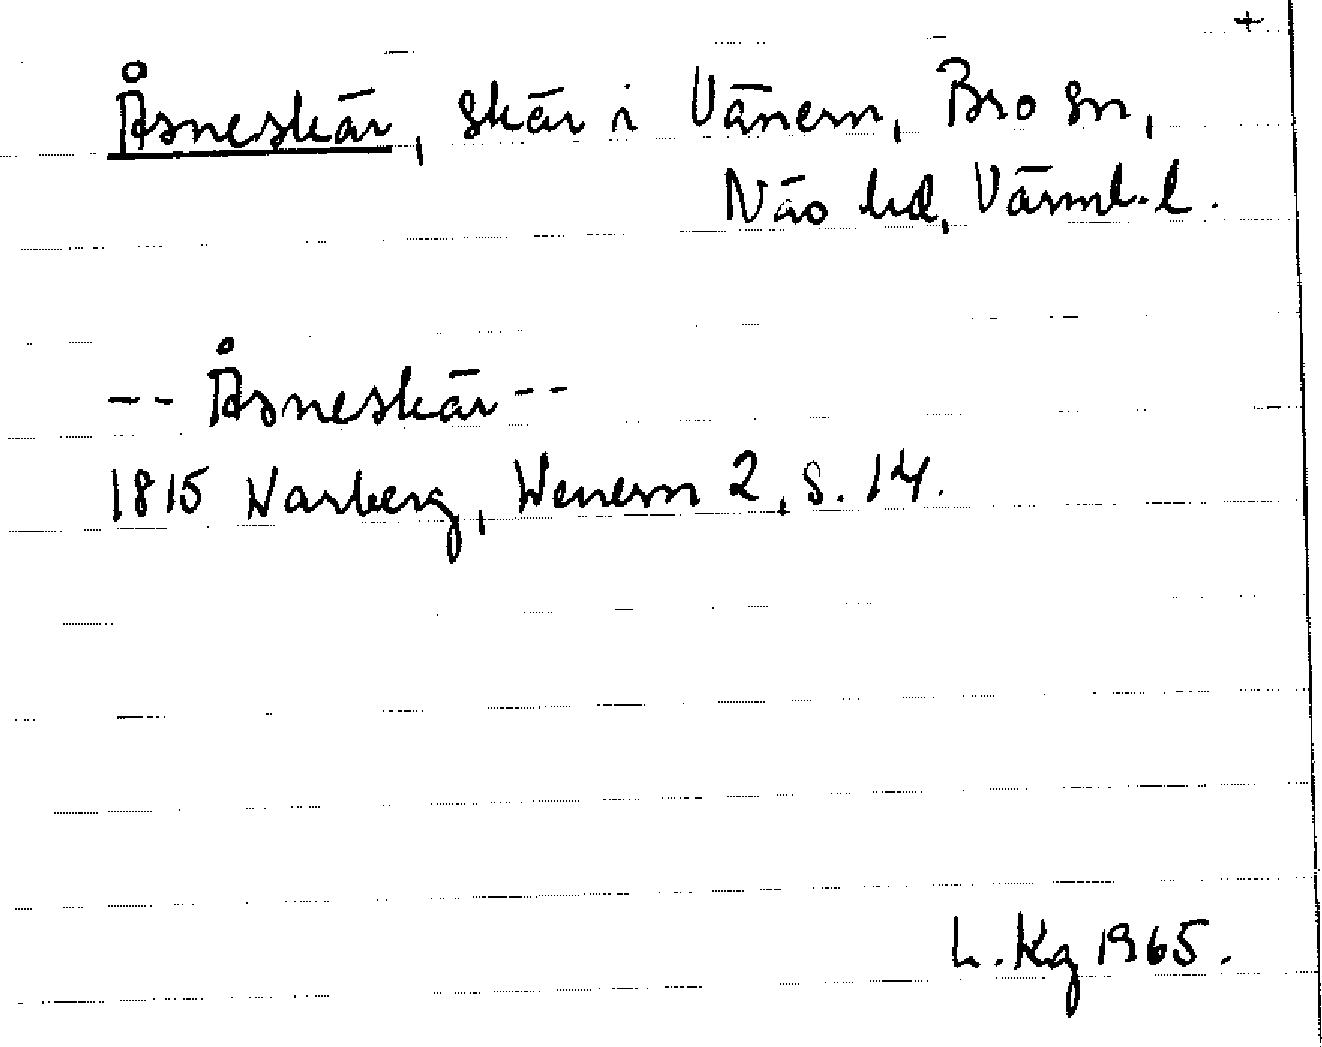 +
Åsneskär, skär i Vänern, Bro sn,
Näs hd, Värml. l.
-- Åsneskär --
1815 Warberg, Wenern 2, s. 14.
L. Kg 1965.